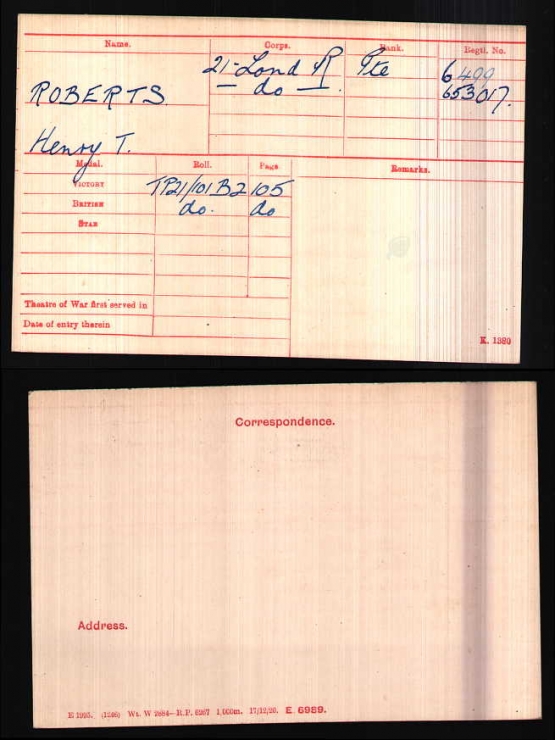 Name. Corps. Rank. Regtl. No.
21-Lond R Pte 6499
ROBERTS — do —. 653017.
Henry T.
Medal. Roll. Page Remarks.
VICTORY TP21/101B2 105
BRITISH do. do
STAR
Theatre of War first served in
Date of entry therein
K. 1380
Correspondence.
Address.
E 1995. (1246) Wt. W 2884—R.P. 6267 1,000m. 17/12/20. E. 6959.